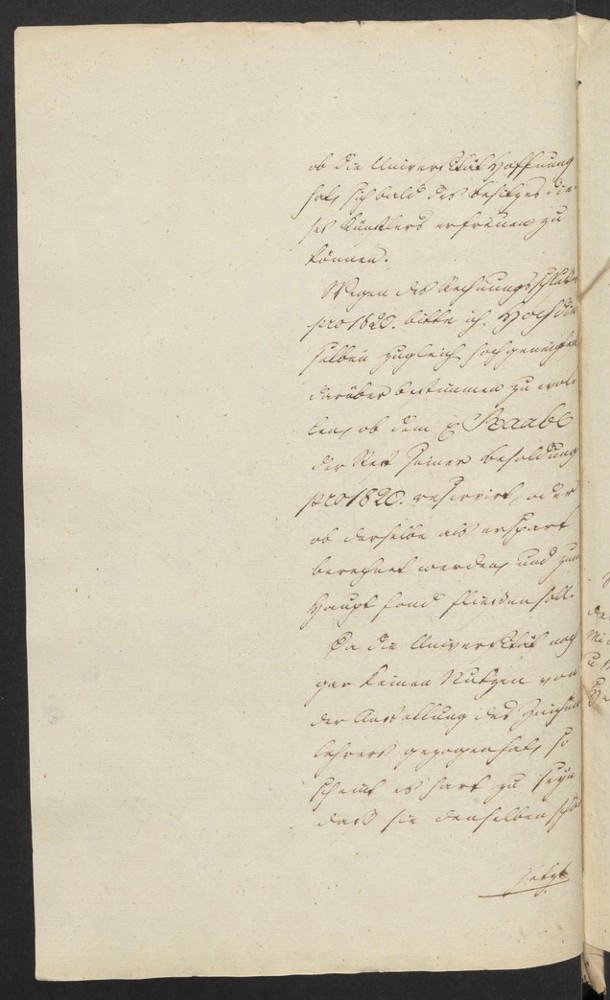 ob die Universität Hoffnung
hat, sich bald des Besitzes die-
ses Künstlers erfreuen zu
können.
Wegen des Rechnungsschlusses
pro 1820. bitte ich, Hochdie-
selben zugleich hochgeneigtest
darüber bestimmen zu wol-
len, ob dem p Raabe
der Rest seiner Besoldung
pro 1820. reservirt, oder
ob derselbe als erspart
berechnet werden, und zum
Haupt fond fließen soll.
Da die Universität noch
gar keinen Nutzen von
der Anstellung des Zeichen-
lehrers gezogen hat, so
scheint es hart zu seyn
daß sie denselben schon